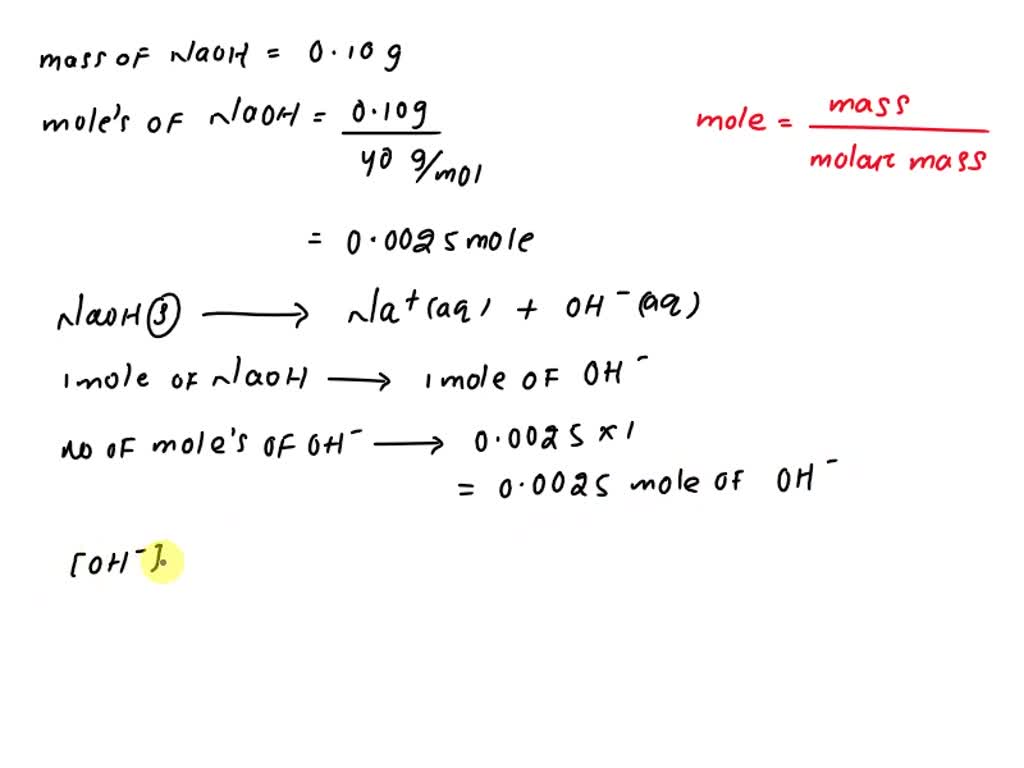 mass of NaOH = 0.10g
mole's of NaOH = 0.10g / 40 g/mol
mole = mass / molar mass
= 0.0025 mole
NaOH(s) → Na⁺(aq) + OH⁻(aq)
1 mole of NaOH → 1 mole of OH⁻
no of mole's of OH⁻ → 0.0025 × 1
= 0.0025 mole of OH⁻
[OH⁻]